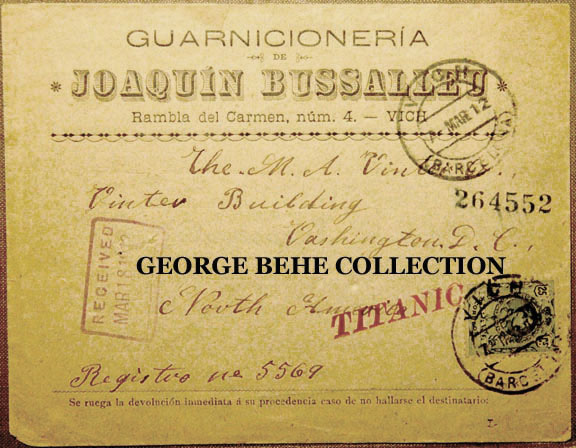 GUARNICIONERÍA
DE
JOAQUÍN BUSSALLEU
Rambla del Carmen, núm. 4. — VICH
VICH
7 MAR 12
(BARCELONA)
The M. A. Winter
Winter Building
264552
Washington, D. C.,
RECEIVED
MAR 18 1912
GEORGE BEHE COLLECTION
North America
TITANIC
VICH
(BARCEL
Registro ne 5569
Se ruega la devolución inmediata á su procedencia caso de no hallarse el destinatario: